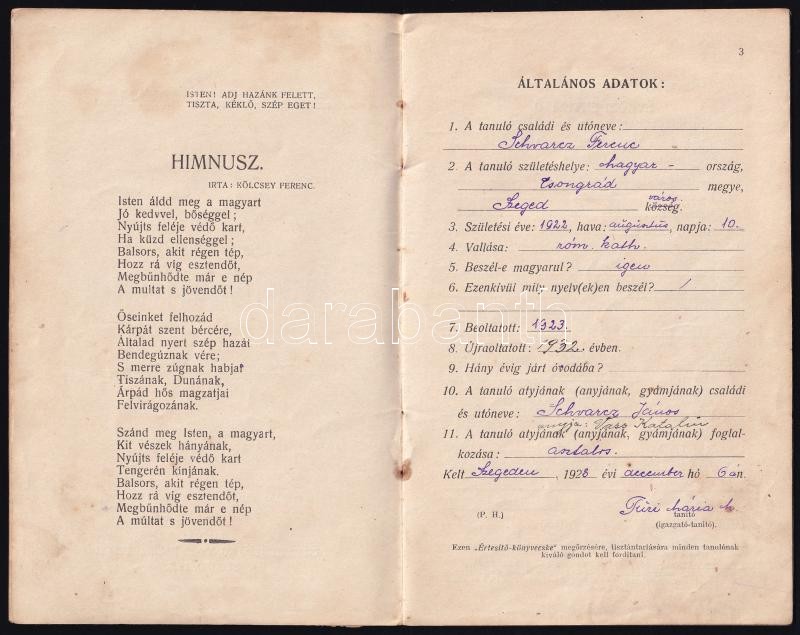 ISTEN! ADJ HAZÁNK FELETT,
TISZTA, KÉKLŐ, SZÉP EGET!
HIMNUSZ.
IRTA: KÖLCSEY FERENC.
Isten áldd meg a magyart
Jó kedvvel, bőséggel;
Nyújts feléje védő kart,
Ha küzd ellenséggel;
Balsors, akit régen tép,
Hozz rá víg esztendőt,
Megbűnhődte már e nép
A multat s jövendőt!
Őseinket felhozád
Kárpát szent bércére,
Általad nyert szép hazát
Bendegúznak vére;
S merre zúgnak habjai
Tiszának, Dunának,
Árpád hős magzatjai
Felvirágozának.
Szánd meg Isten, a magyart,
Kit vészek hányának,
Nyújts feléje védő kart
Tengerén kínjának.
Balsors, akit régen tép,
Hozz rá víg esztendőt,
Megbűnhődte már e nép
A múltat s jövendőt!
3
ÁLTALÁNOS ADATOK:
1. A tanuló családi és utóneve:
Schvarcz Ferenc
2. A tanuló születéshelye: Magyar- ország,
Csongrád megye,
Szeged város község.
3. Születési éve: 1922, hava: augusztus, napja: 10.
4. Vallása: róm. kath.
5. Beszél-e magyarul? igen
6. Ezenkívül mily nyelv(ek)en beszél? /
7. Beoltatott: 1923.
8. Újraoltatott: 1932. évben.
9. Hány évig járt óvodába?
10. A tanuló atyjának (anyjának, gyámjának) családi
és utóneve: Schvarcz János
anyja: Vass Katalin
11. A tanuló atyjának (anyjának, gyámjának) foglal-
kozása: asztalos.
Kelt Szegeden, 1928 évi december hó 6 án.
Türi Mária
(P. H.) tanító
(igazgató-tanító).
Ezen „Értesítő-könyvecske" megőrzésére, tisztántartására minden tanulónak
kiváló gondot kell fordítani.
darabanth